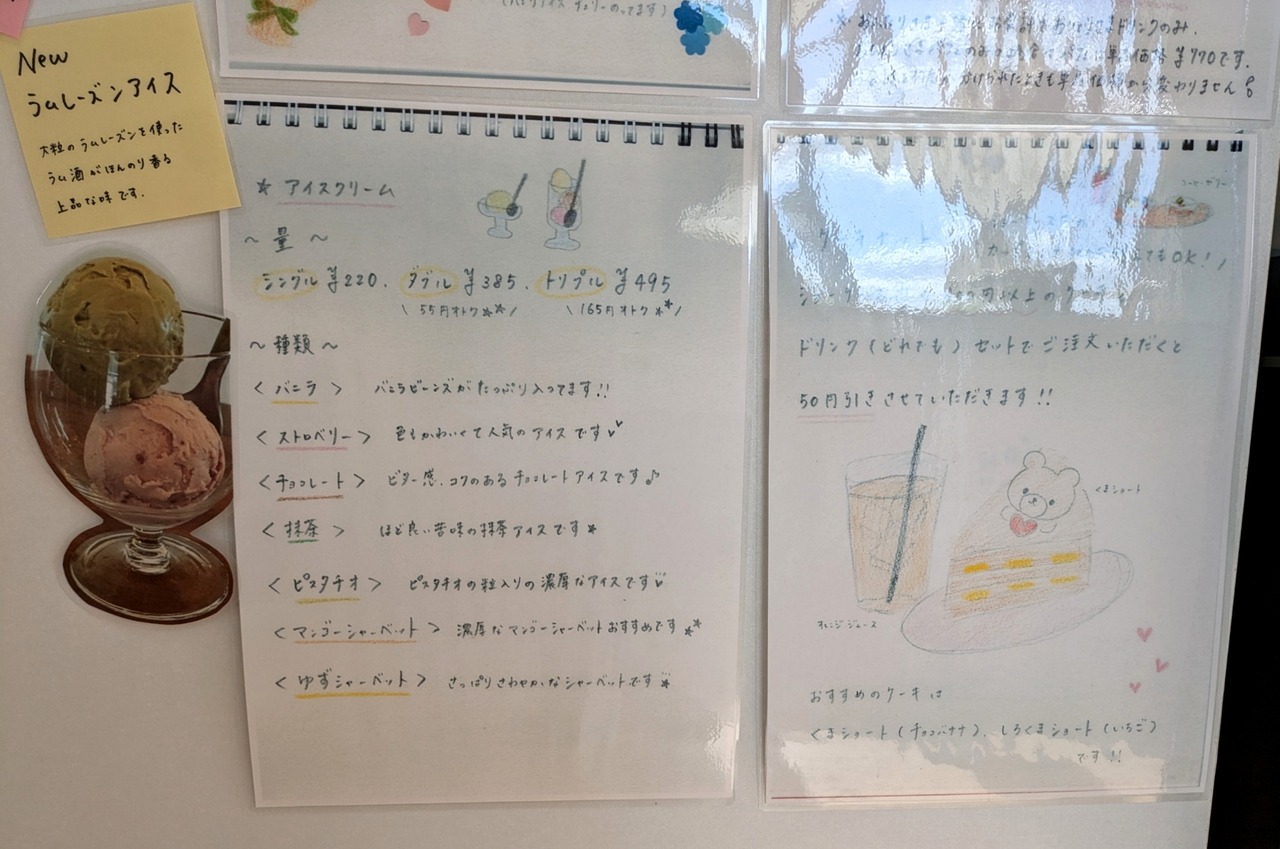 New
ラムレーズンアイス
大粒のラムレーズンを使った
ラム酒がほんのり香る
上品な味です.
ドリンクのみ.
価格 ¥770です.
変わりません
★ アイスクリーム
〜 量 〜
シングル ¥220. ダブル ¥385. トリプル ¥495
\ 55円オトク** / \ 165円オトク** /
〜 種類 〜
< バニラ > バニラビーンズがたっぷり入ってます!!
< ストロベリー > 色もかわいくて人気のアイスです
< チョコレート > ビター感、コクのあるチョコレートアイスです♪
< 抹茶 > ほど良い苦味の抹茶アイスです★
< ピスタチオ > ピスタチオの粒入りの濃厚なアイスです
< マンゴーシャーベット > 濃厚なマンゴーシャーベットおすすめです**
< ゆずシャーベット > さっぱりさわやかなシャーベットです
コーヒーゼリー
てもOK! /
円以上の
ドリンク (どれでも) セットでご注文いただくと
50円引きさせていただきます!!
くまショート
オレンジジュース
おすすめのケーキは
くまショート (チョコバナナ)、しろくまショート (いちご)
です!!